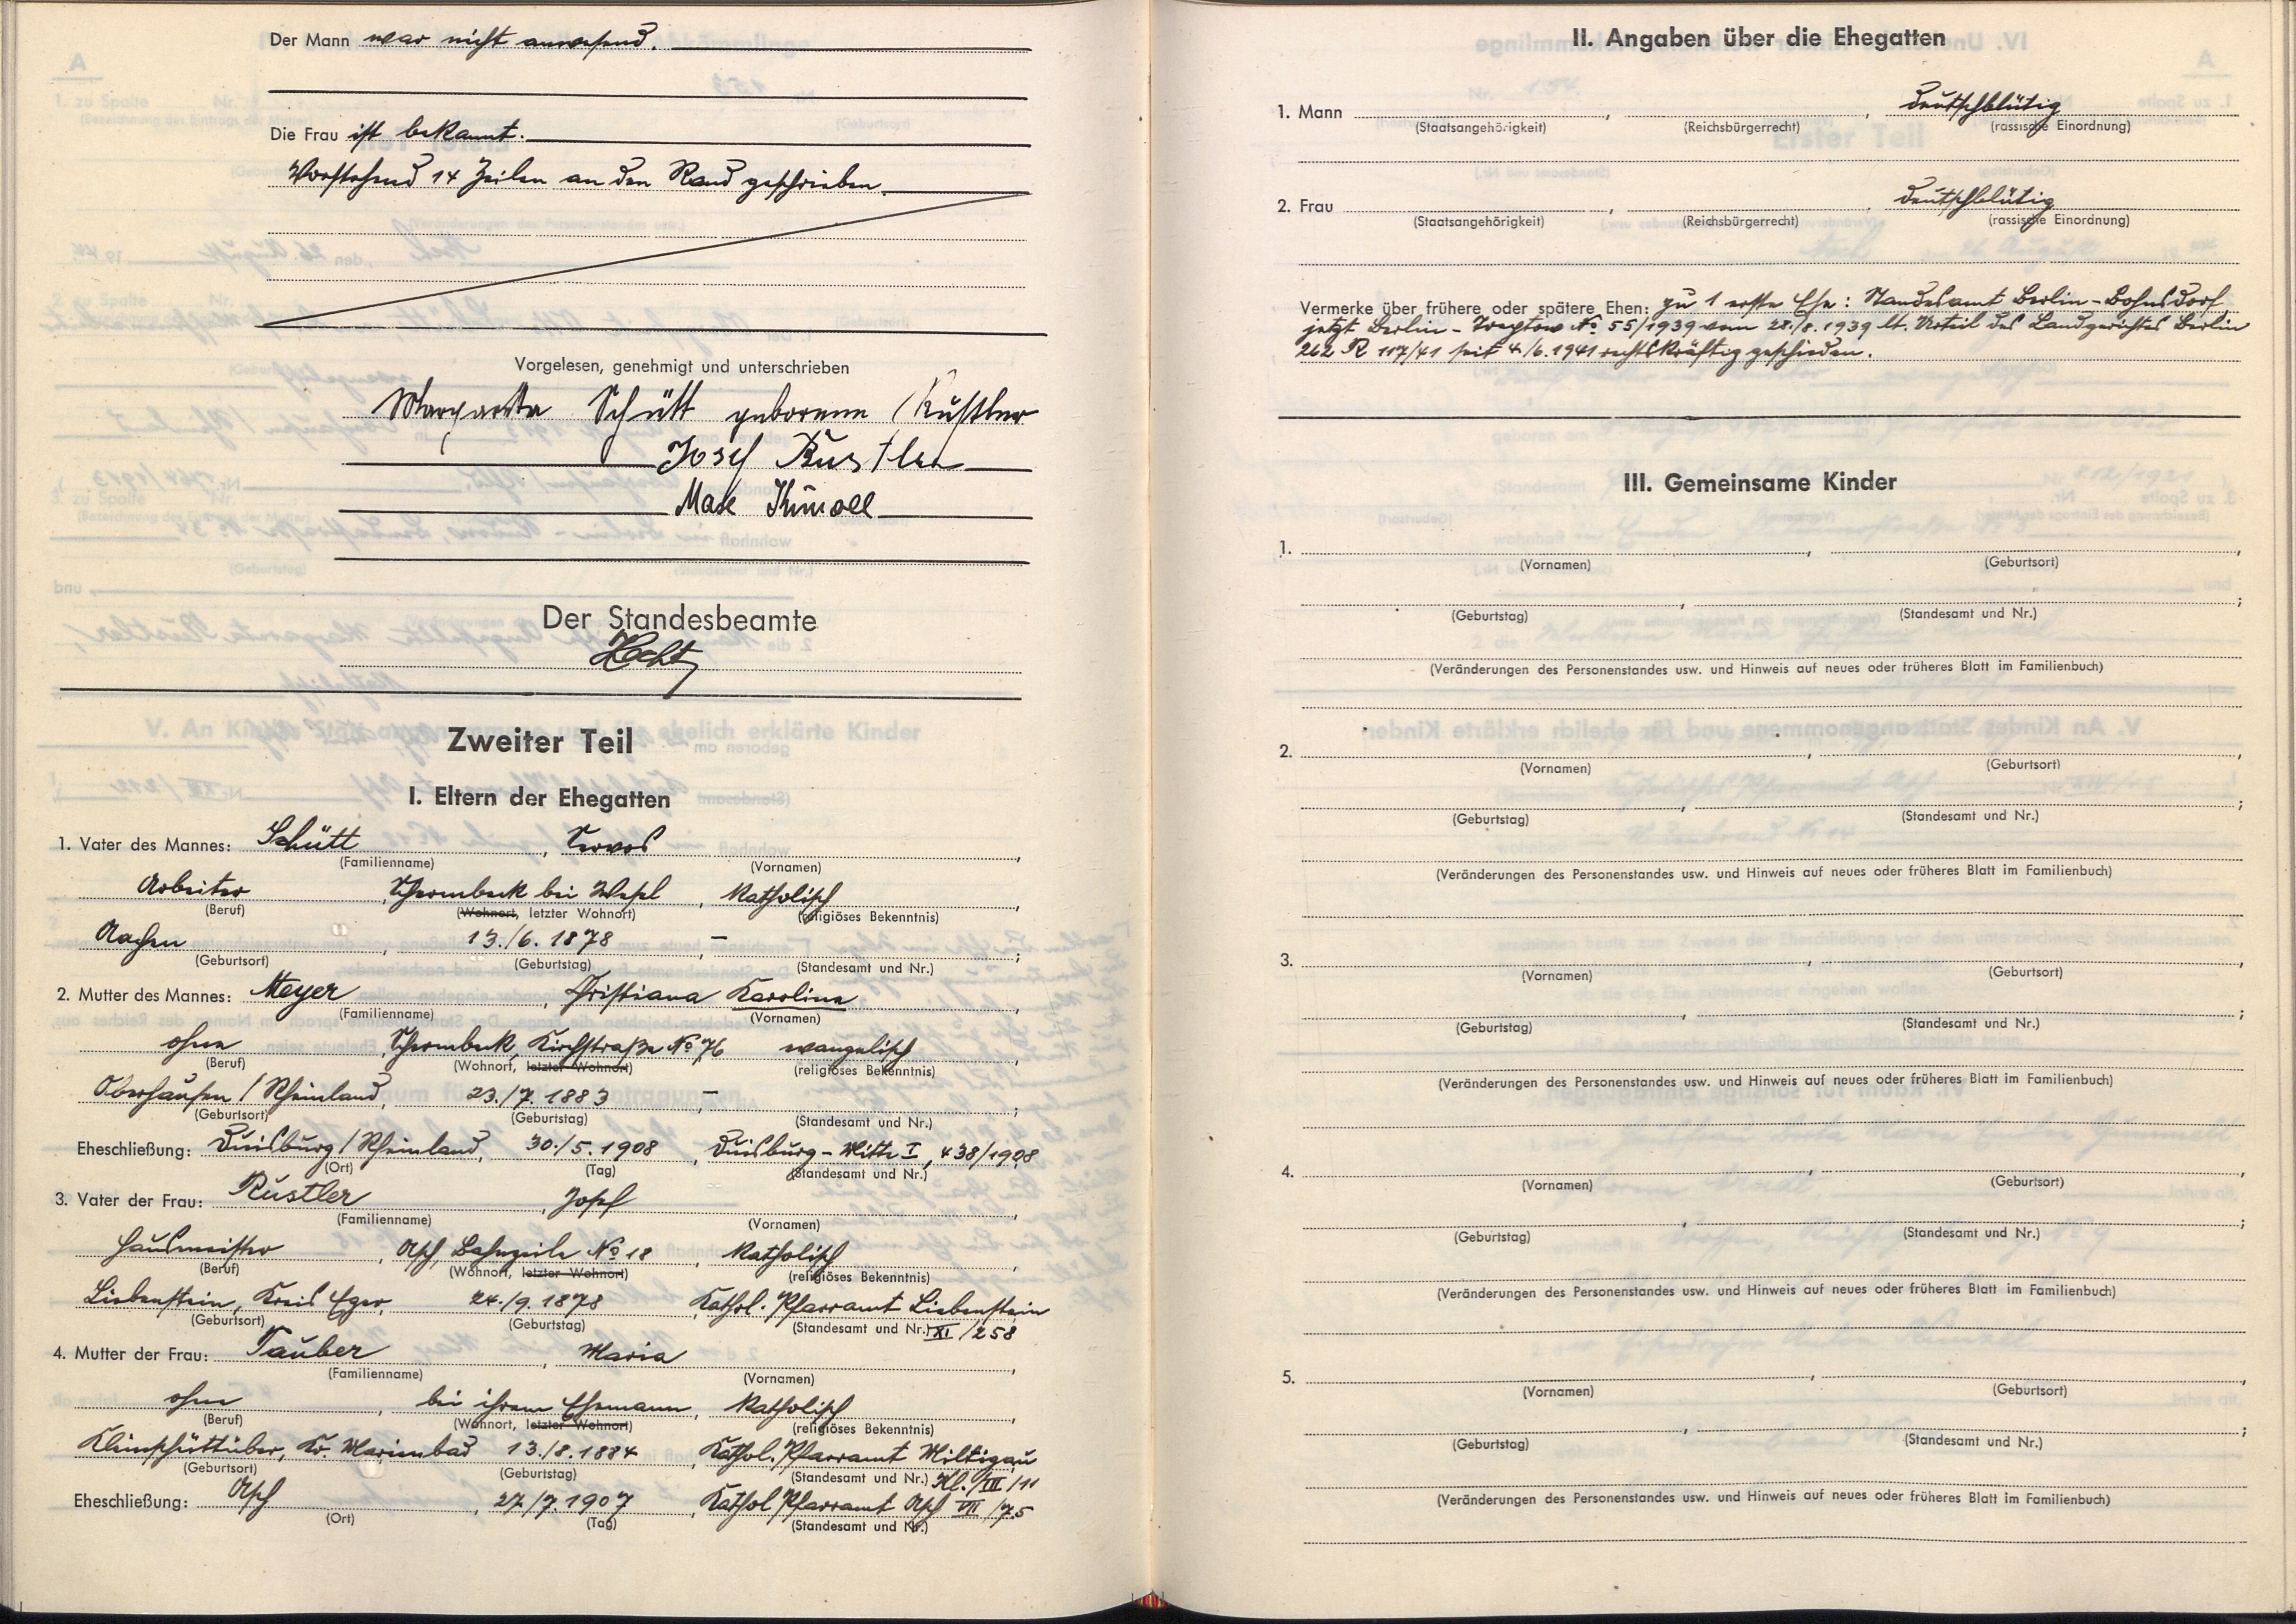 Der Mann war nicht anwesend.
Die Frau ist bekannt.
Vorstehend 14 Zeilen an den Rand geschrieben.
Vorgelesen, genehmigt und unterschrieben
Margareta Schütt geborene Rustler
Josef Rustler
Max
Der Standesbeamte
Hecht
Zweiter Teil
I. Eltern der Ehegatten
1. Vater des Mannes: Schütt,
(Familienname) (Vornamen)
Arbeiter, Schermbeck bei Wesel, katholisch,
(Beruf) (Wohnort, letzter Wohnort) (religiöses Bekenntnis)
Aachen, 13./6. 1878, –;
(Geburtsort) (Geburtstag) (Standesamt und Nr.)
2. Mutter des Mannes: Meyer, Christiana Karolina,
(Familienname) (Vornamen)
ohne, Schermbeck, Kirchstraße No 76 evangelisch,
(Beruf) (Wohnort, letzter Wohnort) (religiöses Bekenntnis)
Oberhausen / Rheinland, 23./7. 1883, –;
(Geburtsort) (Geburtstag) (Standesamt und Nr.)
Eheschließung: Duisburg / Rheinland, 30./5. 1908, Duisburg-Mitte I, 438/1908
(Ort) (Tag) (Standesamt und Nr.)
3. Vater der Frau: Rustler, Josef,
(Familienname) (Vornamen)
Hausmeister, Asch, Bahnzeile No 18, katholisch,
(Beruf) (Wohnort, letzter Wohnort) (religiöses Bekenntnis)
Liebenstein, Kreis Eger, 24./9. 1878, Kathol. Pfarramt Liebenstein
(Geburtsort) (Geburtstag) (Standesamt und Nr.) XI /258
4. Mutter der Frau: Tauber, Maria,
(Familienname) (Vornamen)
ohne, bei ihrem Ehemann, katholisch,
(Beruf) (Wohnort, letzter Wohnort) (religiöses Bekenntnis)
Kleinschüttüber, Kr. Marienbad 13./8. 1884, Kathol. Pfarramt Miltigau
(Geburtsort) (Geburtstag) (Standesamt und Nr.) Kl./III /11
Eheschließung: Asch, 27./7. 1907, Kathol Pfarramt Asch VII /75
(Ort) (Tag) (Standesamt und Nr.)
II. Angaben über die Ehegatten
1. Mann, , deutschblütig
(Staatsangehörigkeit) (Reichsbürgerrecht) (rassische Einordnung)
2. Frau, , deutschblütig
(Staatsangehörigkeit) (Reichsbürgerrecht) (rassische Einordnung)
Vermerke über frühere oder spätere Ehen: zu 1 erste Ehe: Standesamt Berlin-Bohnsdorf
jetzt Berlin-Treptow No 55/1939 vom 28./8. 1939 lt. Urteil des Landgerichtes Berlin
262 R 117/41 seit 4./6. 1941 rechtskräftig geschieden.
III. Gemeinsame Kinder
1.
(Vornamen) (Geburtsort)
(Geburtstag) (Standesamt und Nr.)
(Veränderungen des Personenstandes usw. und Hinweis auf neues oder früheres Blatt im Familienbuch)
2.
(Vornamen) (Geburtsort)
(Geburtstag) (Standesamt und Nr.)
(Veränderungen des Personenstandes usw. und Hinweis auf neues oder früheres Blatt im Familienbuch)
3.
(Vornamen) (Geburtsort)
(Geburtstag) (Standesamt und Nr.)
(Veränderungen des Personenstandes usw. und Hinweis auf neues oder früheres Blatt im Familienbuch)
4.
(Vornamen) (Geburtsort)
(Geburtstag) (Standesamt und Nr.)
(Veränderungen des Personenstandes usw. und Hinweis auf neues oder früheres Blatt im Familienbuch)
5.
(Vornamen) (Geburtsort)
(Geburtstag) (Standesamt und Nr.)
(Veränderungen des Personenstandes usw. und Hinweis auf neues oder früheres Blatt im Familienbuch)